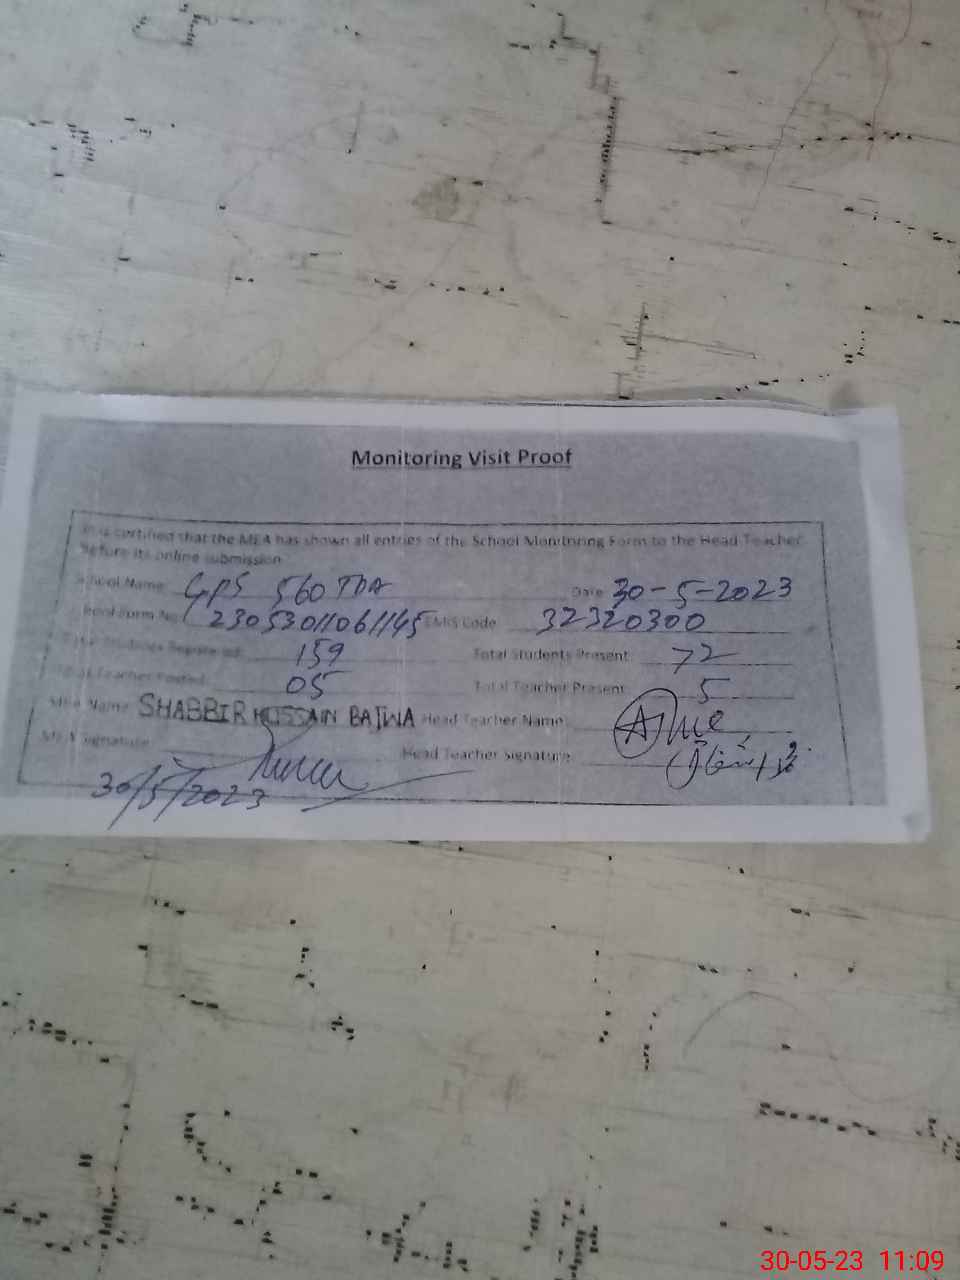 Monitoring Visit Proof
It is certified that the MEA has shown all entries of the School Monitoring Form to the Head Teacher
Before its online submission
School Name: GPS 560 TDA Date: 30-5-2023
Form No. 23053011061145 EMIS Code: 32320300
Total Students Registered: 159 Total Students Present: 72
Total Teacher Posted: 05 Total Teacher Present: 5
MEA Name: SHABBIR HUSSAIN BAJWA Head Teacher Name:
MEA Signature: Head Teacher Signature:
30/5/2023
30-05-23 11:09